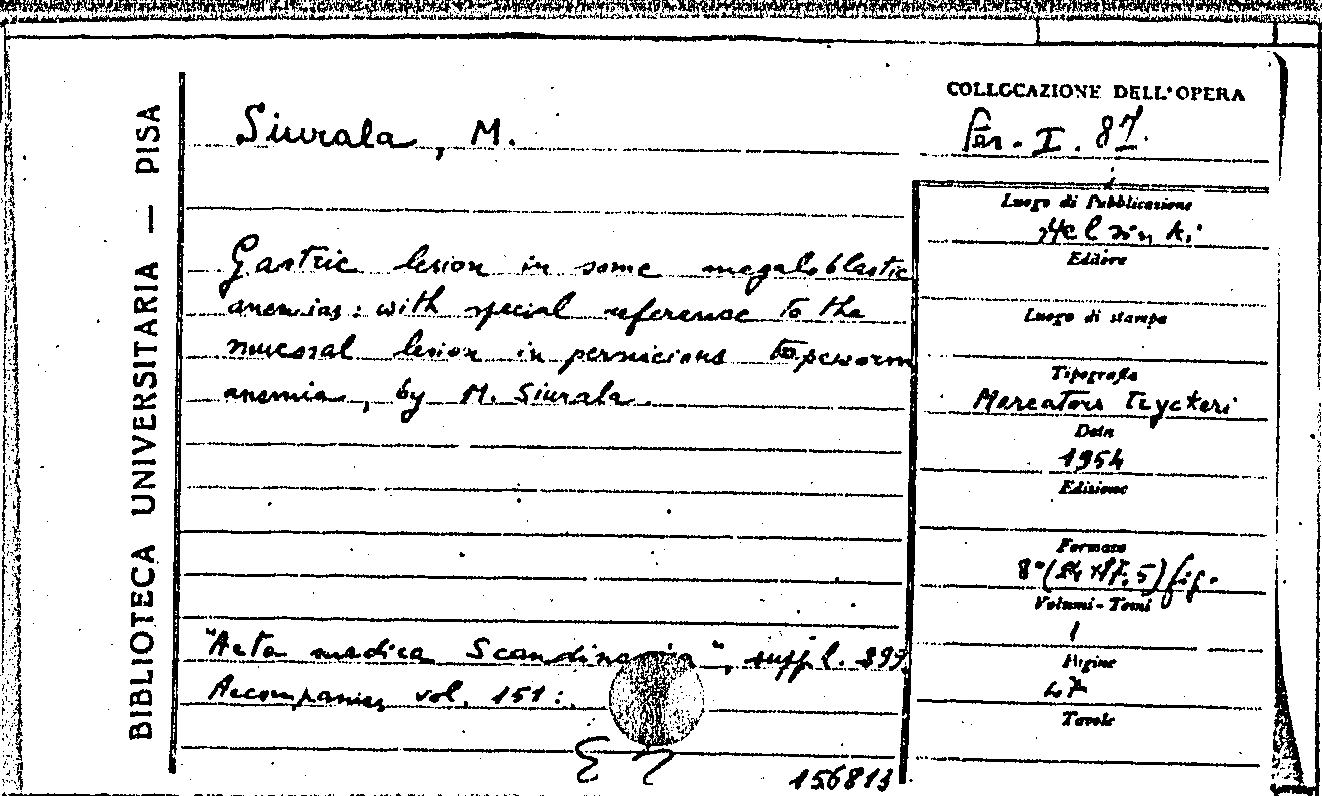 BIBLIOTECA UNIVERSITARIA — PISA
Siurala, M.
Gastric lesion in some megaloblastic
anemias: with special reference to the
mucosal lesion in pernicious tapeworm
anemia, by M. Siurala.
"Acta medica Scandinavica", suppl. 299.
Accompanies vol. 151:.
156813
COLLOCAZIONE DELL'OPERA
Per. I. 87.
Luogo di Pubblicazione
Helsinki
Editore
Luogo di stampa
Tipografia
Mercators tryckeri
Data
1954
Edizione
Formato
8° (24x17,5) fig.
Volumi - Tomi
1
Pagine
47
Tavole